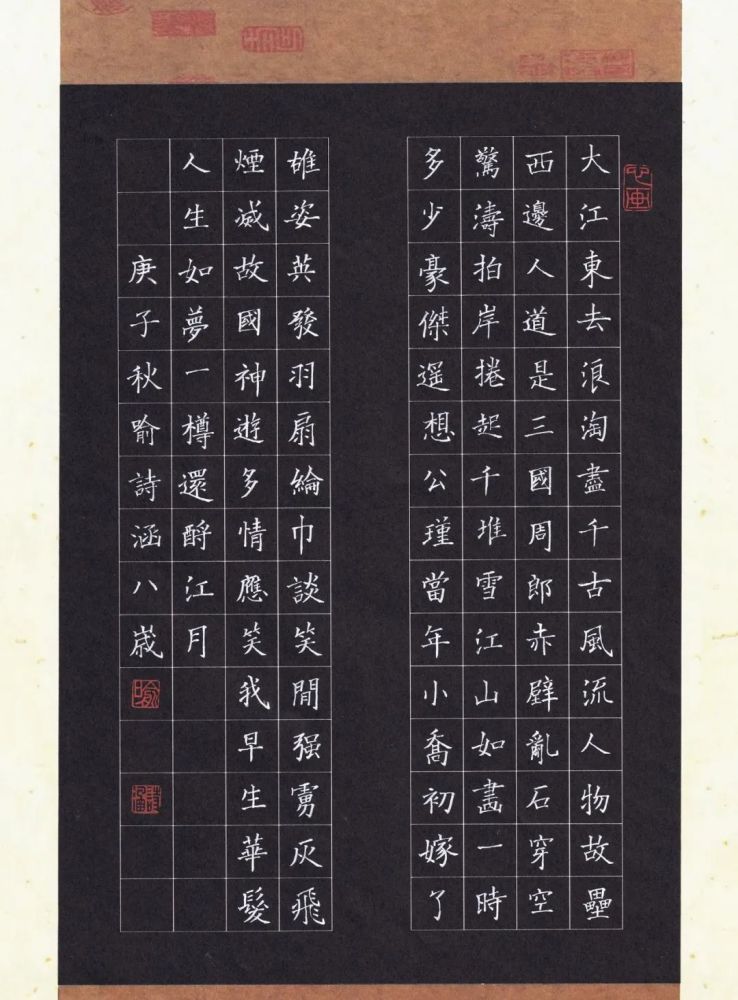 大江東去浪淘盡千古風流人物故壘
西邊人道是三國周郎赤壁亂石穿空
驚濤拍岸捲起千堆雪江山如畫一時
多少豪傑遥想公瑾當年小喬初嫁了
雄姿英發羽扇綸巾談笑間强虜灰飛
煙滅故國神遊多情應笑我早生華髮
人生如夢一樽還酹江月
庚子秋喻詩涵八歲